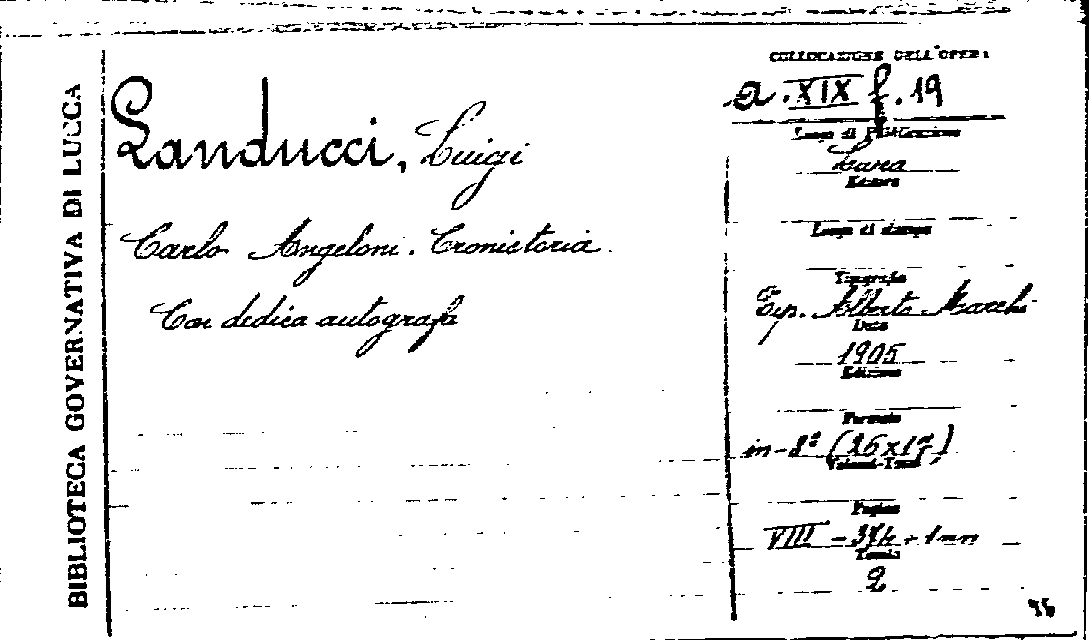 BIBLIOTECA GOVERNATIVA DI LUCCA
Landucci, Luigi
Carlo Angeloni. Cronistoria.
Con dedica autografa
COLLOCAZIONE DELL'OPERA
a. XIX f. 19
Luogo di Pubblicazione
Editore
Luogo di stampa
Tipografia
Tip. Alberto Marchi
Data
1905
Edizione
Formato
in-8° (26x17)
Volumi-Tomi
Pagine
VIII - 374 + 1 nn
Tavole
2